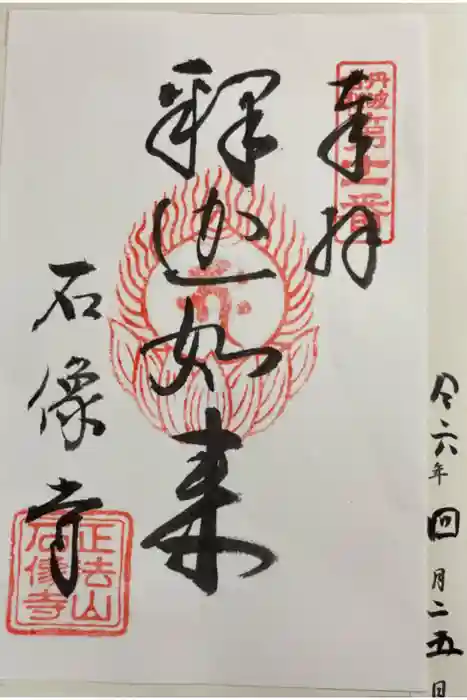 丹波古刹第十一番
奉拝
釋迦如来
石像寺
正法山
石像寺
令六年四月二五日